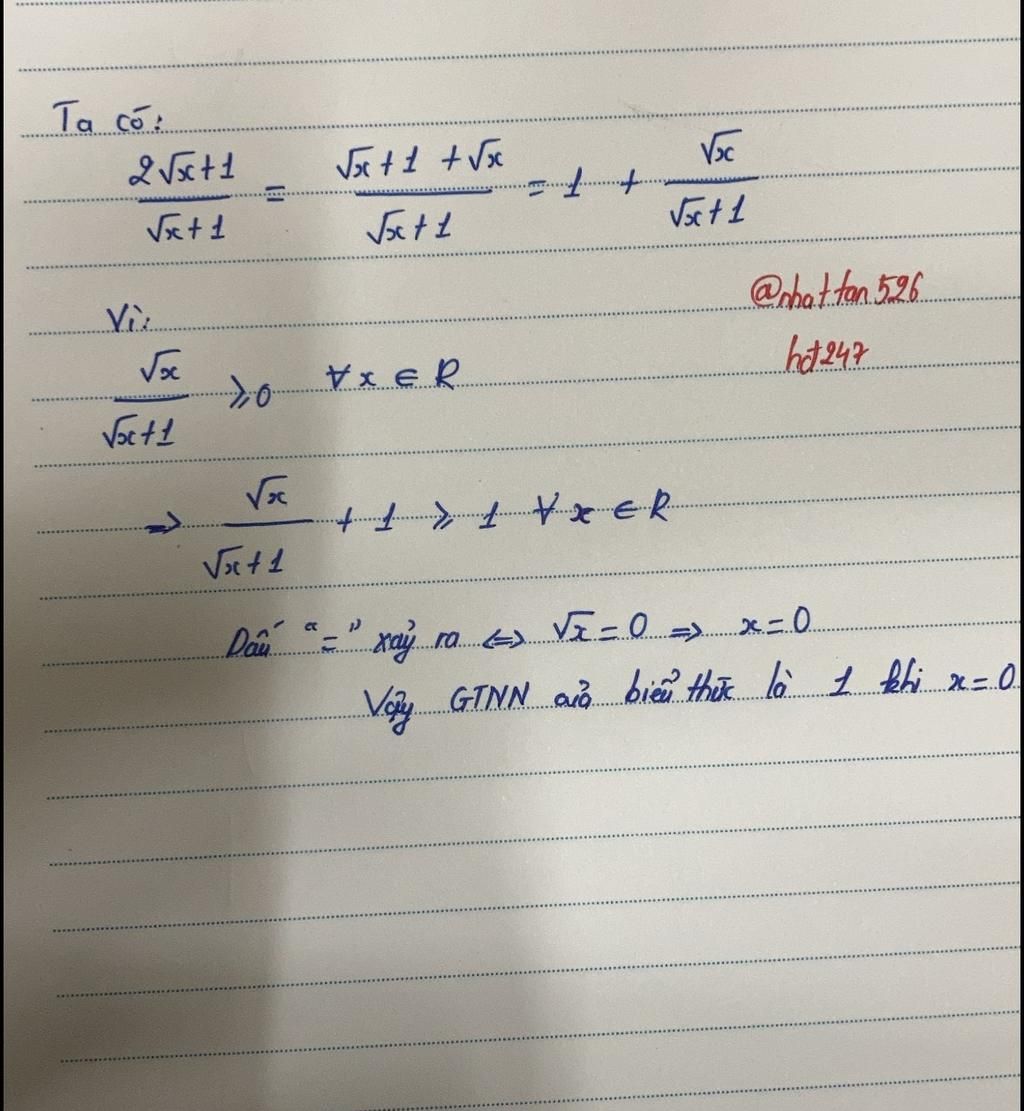 Ta có:
2√x+1 / √x+1 = √x+1+√x / √x+1 = 1 + √x / √x+1
@nhattan526
hdt247
Vì:
√x / √x+1 ⩾ 0 ∀x ∈ R
⇒ √x / √x+1 + 1 ⩾ 1 ∀x ∈ R
Dấu "=" xảy ra ⇔ √x = 0 ⇒ x = 0
Vậy GTNN của biểu thức là 1 khi x=0